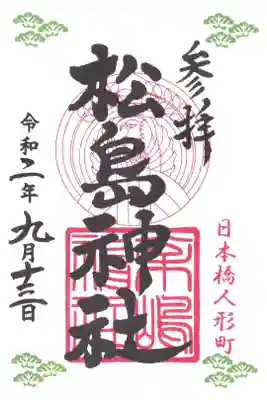 参拝
日本橋人形町
松島神社
令和二年
九月十三日